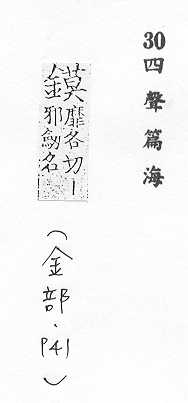 30四聲篇海
鏌靡各切丨
邪劒名
（金部、P41）